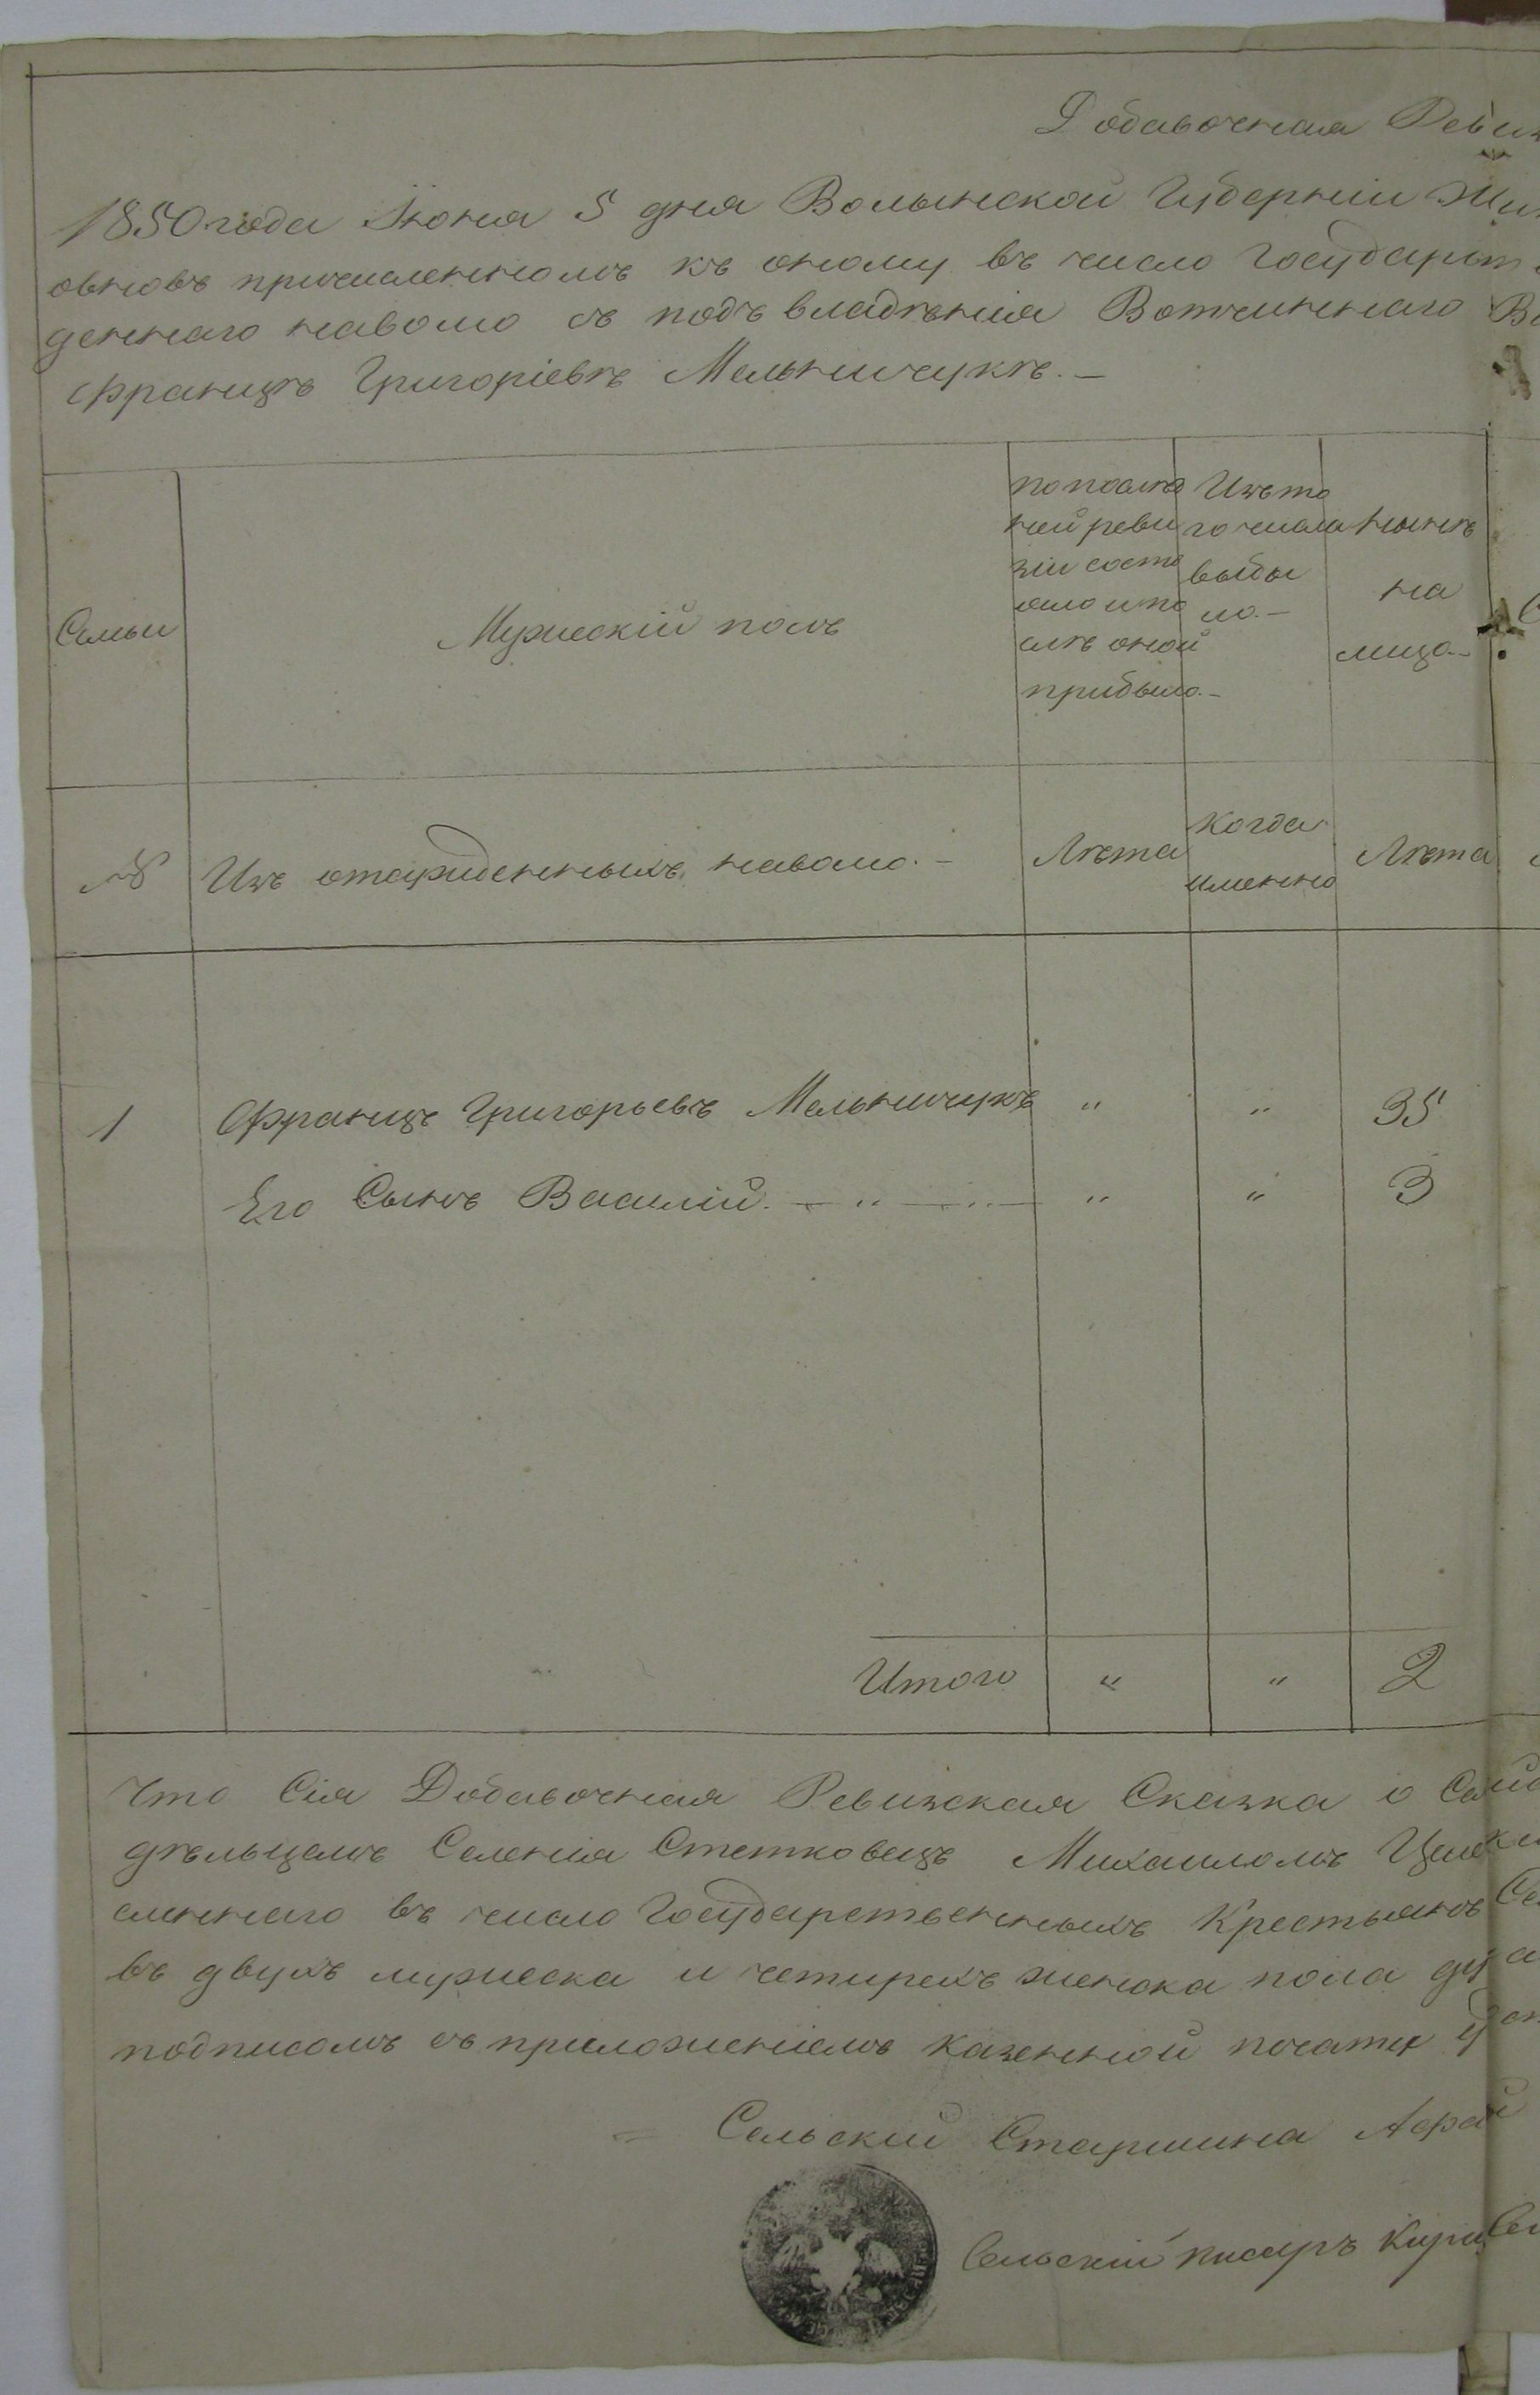 Добавочная Ревиз
1850 года Іюня 5 дня Волынской Губерніи Жит
овновъ причисленномъ къ оному въ число Государст
деннаго наволю съ подъ владѣнія Вотчиннаго
Францѣ Григоріевѣ Мельничукѣ. —
Семьи
Мужескій полъ
по послѣд
ней реви
зіи состо
яло и по
слѣ оной
прибыло. —
Изъ то
го числа
выбы
ло. —
Нынѣ
на
лицо. —
№
Изъ отсужденныхъ наволю. —
Лѣта
Когда
именно
Лѣта
1 Францъ Григорьевъ Мельничукъ " " 35
Его Сынъ Василій. — " — " — " " 3
Итого " " 2
Что Сія Добавочная Ревизская Сказка о
дѣльцемъ Селенія Стетковецъ Михаиломъ
сленнаго въ число Государственныхъ Крестьянъ
въ двухъ мужеска и четырехъ женска пола
подписомъ съ приложеніемъ казенной печати
Сельскій Старшина
Сельскій писарь